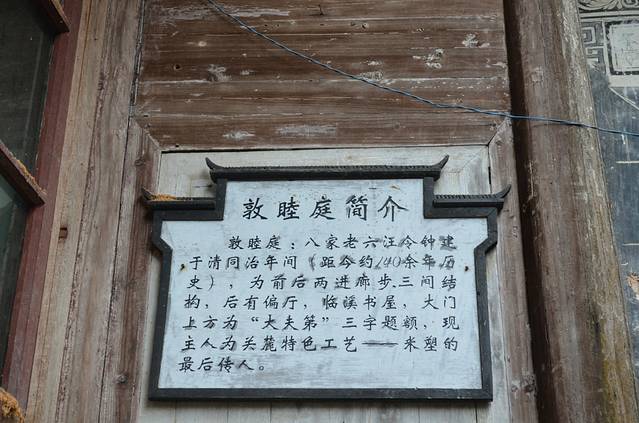 敦睦庭简介
敦睦庭：八家老六汪令钟建
于清同治年间（距今约140余年历
史），为前后两进廊步三间结
构，后有偏厅，临溪书屋，大门
上方为“大夫第”三字题额，现
主人为关麓特色工艺——米塑的
最后传人。